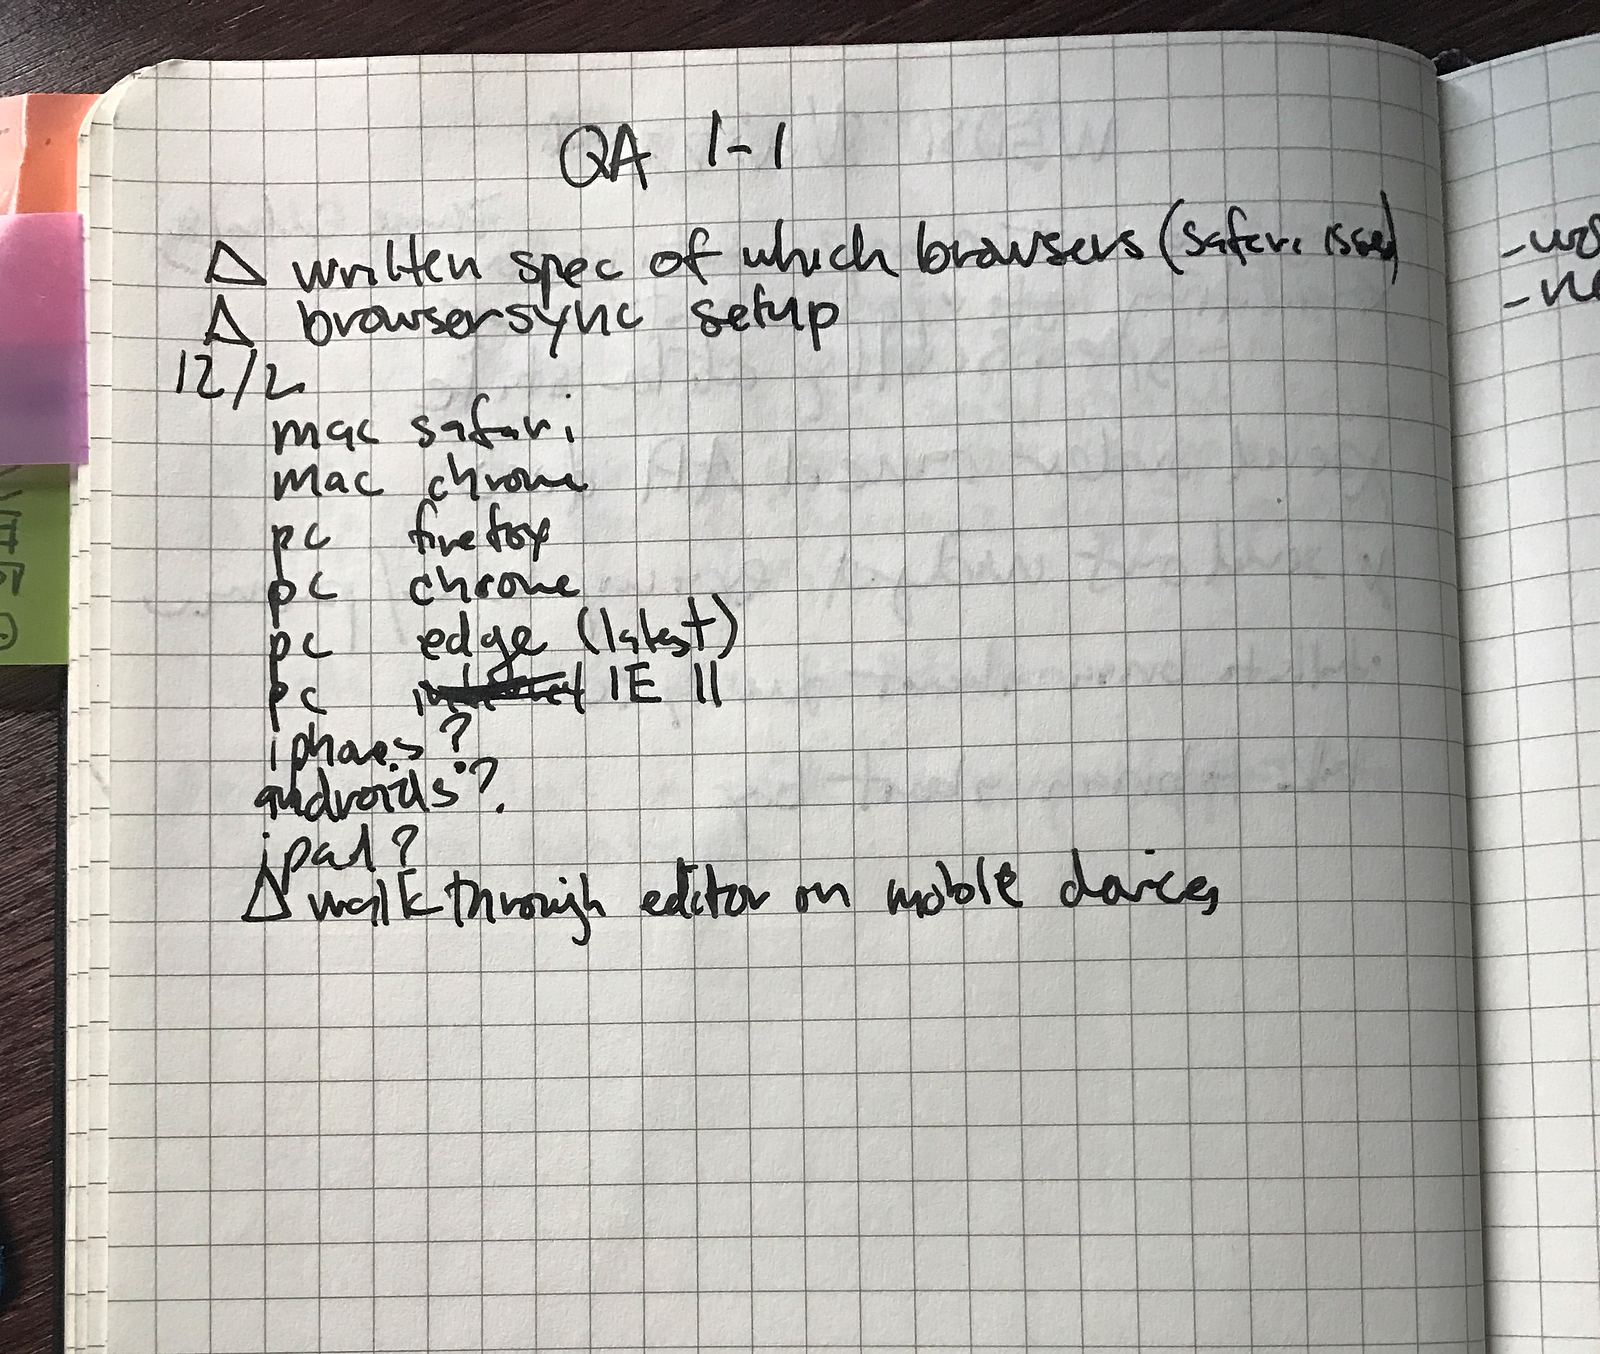 QA 1-1
Δ written spec of which browsers (safari issue)
Δ browsersync setup
12/2
mac safari
mac chrome
pc firefox
pc chrome
pc edge (latest)
pc IE 11
iphones?
androids?
ipad?
Δ walk through editor on mobile devices